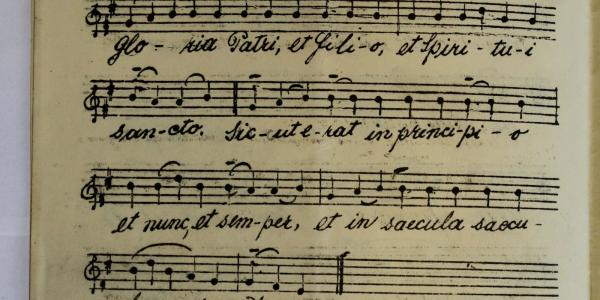 glo - ria Patri, et fili-o, et Spiri - tu-i
san-cto. Sic-ut e-rat in princi-pi - o
et nunc, et sem-per, et in saecula saecu-